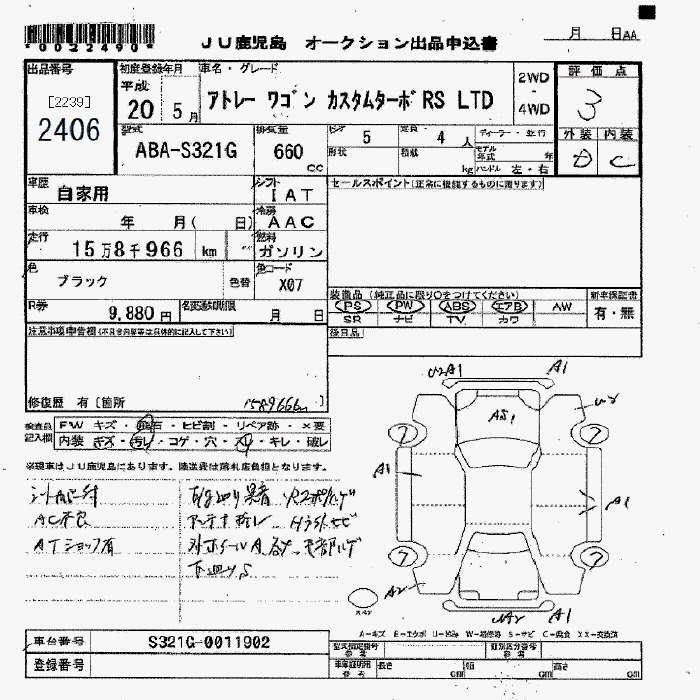 *0022490*
JU鹿児島 オークション出品申込書
月 日AA
出品番号 初度登録年月 車名・グレード 2WD - 4WD 評価点
[2239]
2406
平成 20 5月 アトレー ワゴン カスタムターボ RS LTD
3
外装 内装
D C
型式 ABA-S321G 排気量 660 cc ドア 5 定員 4 人 ディーラー・並行
形状 積載 kg モデル年式 年
ハンドル 左・右
車歴 自家用 シフト I AT セールスポイント(正常に機能するものに限ります)
車検 年 月( 日) 冷房 AAC
走行 15万8千966 km 燃料 ガソリン
色 ブラック 色替 色コード X07
装備品(純正品に限り○をつけてください) 新車保証書
PS PW ABS エアB AW 有・無
SR ナビ TV カワ
R券 9,880円 名変通知期限 月 日
後日品
注意事項申告欄(不具合内容等は具体的に記入して下さい)
修復歴 有〔箇所
158966km
検査員記入欄 FW キズ・飛石・ヒビ割・リペア跡・×要
内装・キズ・汚レ・コゲ・穴・スレ・キレ・破レ
※現車はJU鹿児島にあります。陸送費は落札店負担となります。
AC不良
ATショック有
下廻りS
U2A1
A1
AS1
U2
A1
A1
A2
A1
A-キズ E-エクボ U-凹み W-補修跡 S-サビ C-腐食 XX-交換済
車台番号 S321G-0011902
登録番号
型式指定番号 参考 類別区分番号 参考
車庫証明用 参考 長さ cm 幅 cm 高さ cm